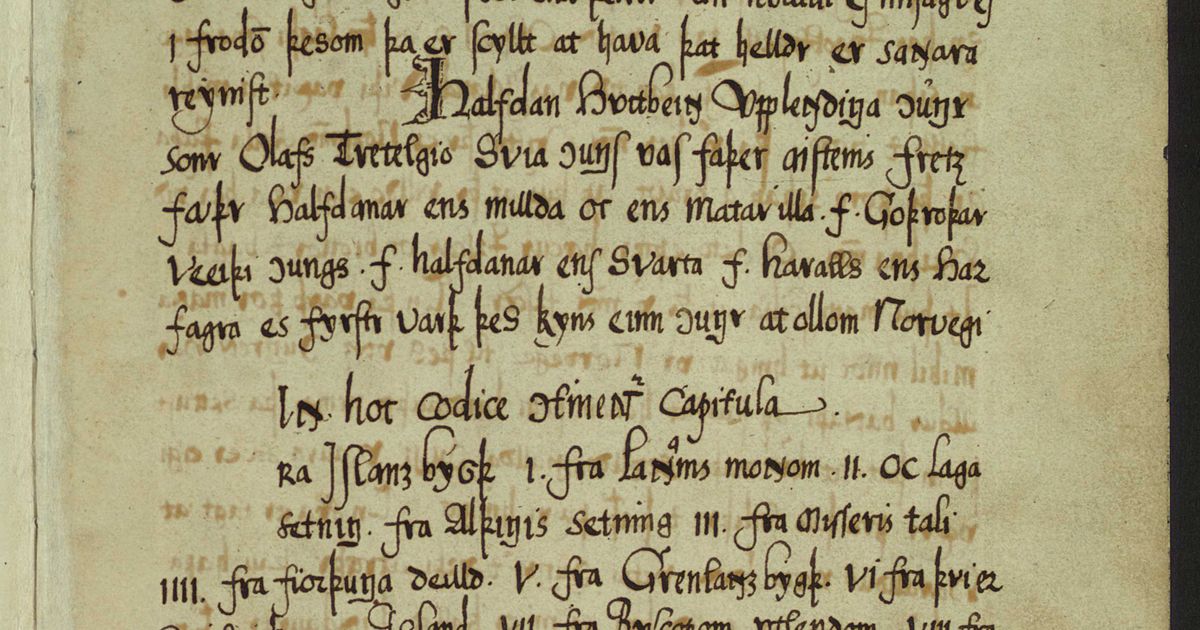 i frodō þesom þa er scyllt at hava þat helldr er saɴara
reynist.
Halfdan Hvitbeiɴ Upplendiŋa cunŋr
sonr Olafs Tretelgio Svia cunŋs vas faþer aistems fretz
faþr Halfdanar ens millda oc ens matar illa. f. Goþroþar
Veiþi cungs. f. halfdanar ens Svarta f. haralls ens Har
fagra es fyrstr varþ þes kyns einn cunŋr at ollom Norvegi
Iɴ hoc codice ↄtinent᷑ Capitula.
ra Islanz bygþ I. fra laɴa̅ms moɴom. II. oc laga
setniŋ. fra Alþiŋis setning III. fra Misseris tali
IIII. fra fiorþuŋa deilld. V. fra Grenlanz bygþ. VI fra þvi er